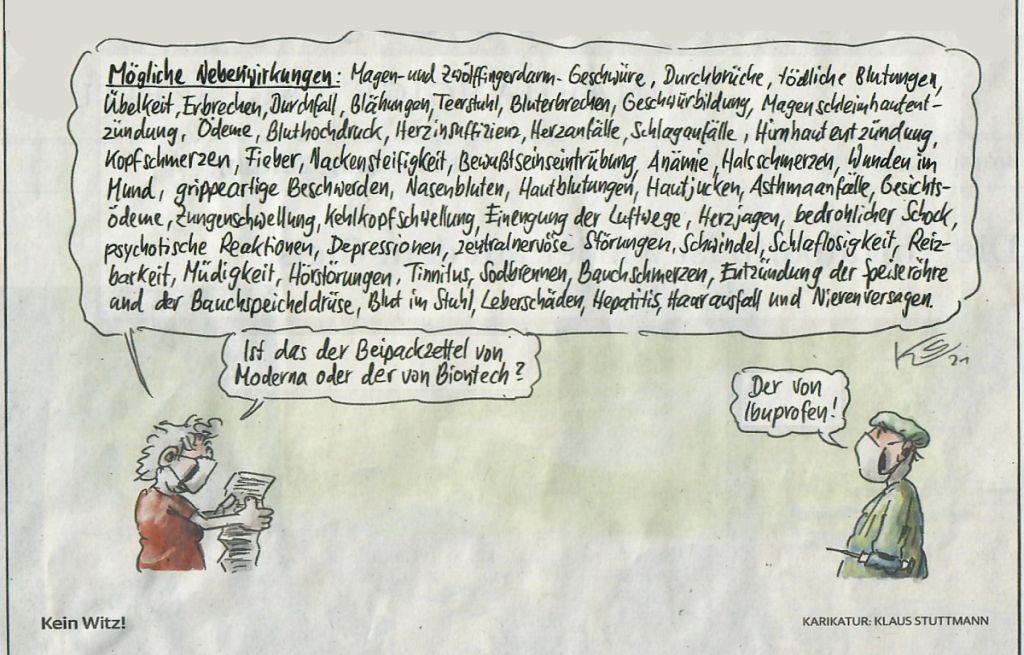 Mögliche Nebenwirkungen: Magen- und Zwölffingerdarm-Geschwüre, Durchbrüche, tödliche Blutungen,
Übelkeit, Erbrechen, Durchfall, Blähungen, Teerstuhl, Bluterbrechen, Geschwürbildung, Magenschleimhautent-
zündung, Ödeme, Bluthochdruck, Herzinsuffizienz, Herzanfälle, Schlaganfälle, Hirnhautentzündung,
Kopfschmerzen, Fieber, Nackensteifigkeit, Bewußtseinseintrübung, Anämie, Halsschmerzen, Wunden im
Mund, grippeartige Beschwerden, Nasenbluten, Hautblutungen, Hautjucken, Asthmaanfälle, Gesichts-
ödeme, Zungenschwellung, Kehlkopfschwellung, Einengung der Luftwege, Herzjagen, bedrohlicher Schock,
psychotische Reaktionen, Depressionen, zentralnervöse Störungen, Schwindel, Schlaflosigkeit, Reiz-
barkeit, Müdigkeit, Hörstörungen, Tinnitus, Sodbrennen, Bauchschmerzen, Entzündung der Speiseröhre
und der Bauchspeicheldrüse, Blut im Stuhl, Leberschäden, Hepatitis, Haarausfall und Nierenversagen.
Ist das der Beipackzettel von
Moderna oder der von Biontech?
Der von
Ibuprofen!
KS 21
Kein Witz!
KARIKATUR: KLAUS STUTTMANN